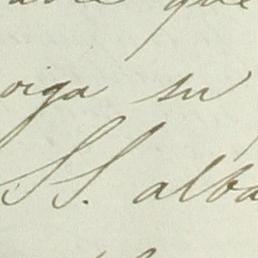 que
oiga su
SS. alba